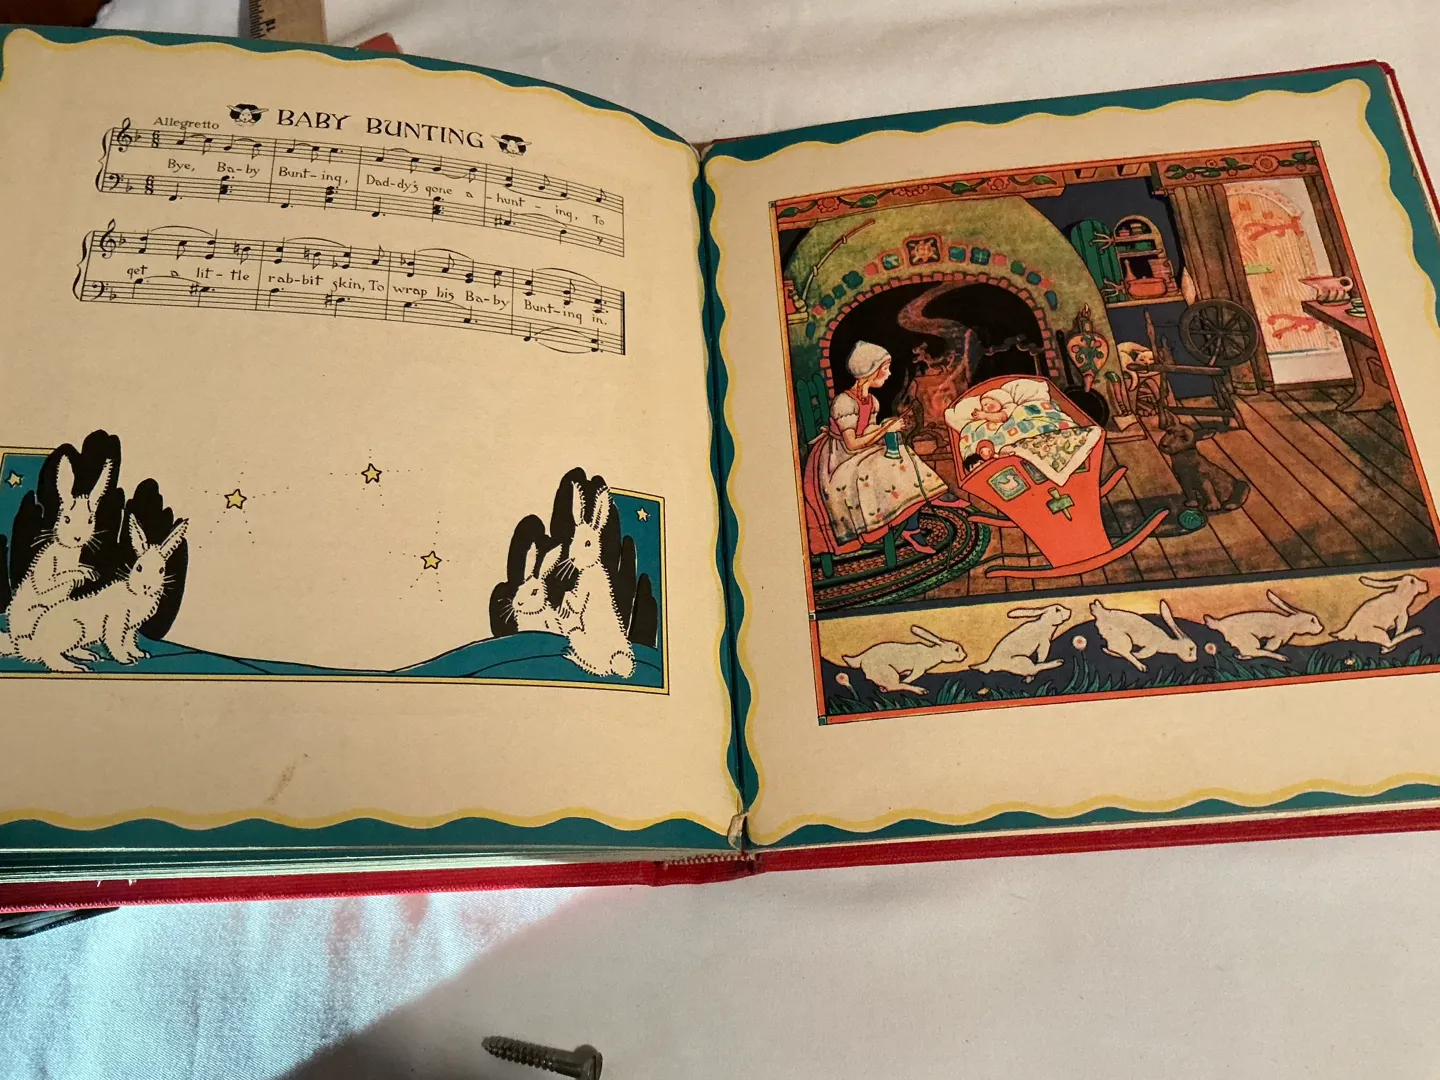 BABY BUNTING
Allegretto
Bye, Ba-by Bunt-ing, Dad-dy's gone a -hunt - ing, To
get a lit-tle rab-bit skin, To wrap his Ba-by Bunt-ing in.